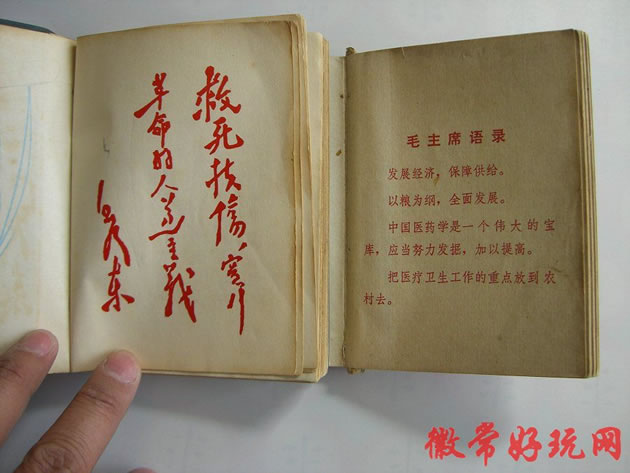 救死扶伤，实行
革命的人道主义
毛泽东
毛主席语录
发展经济，保障供给。
以粮为纲，全面发展。
中国医药学是一个伟大的宝
库，应当努力发掘，加以提高。
把医疗卫生工作的重点放到农
村去。
徽常好玩网